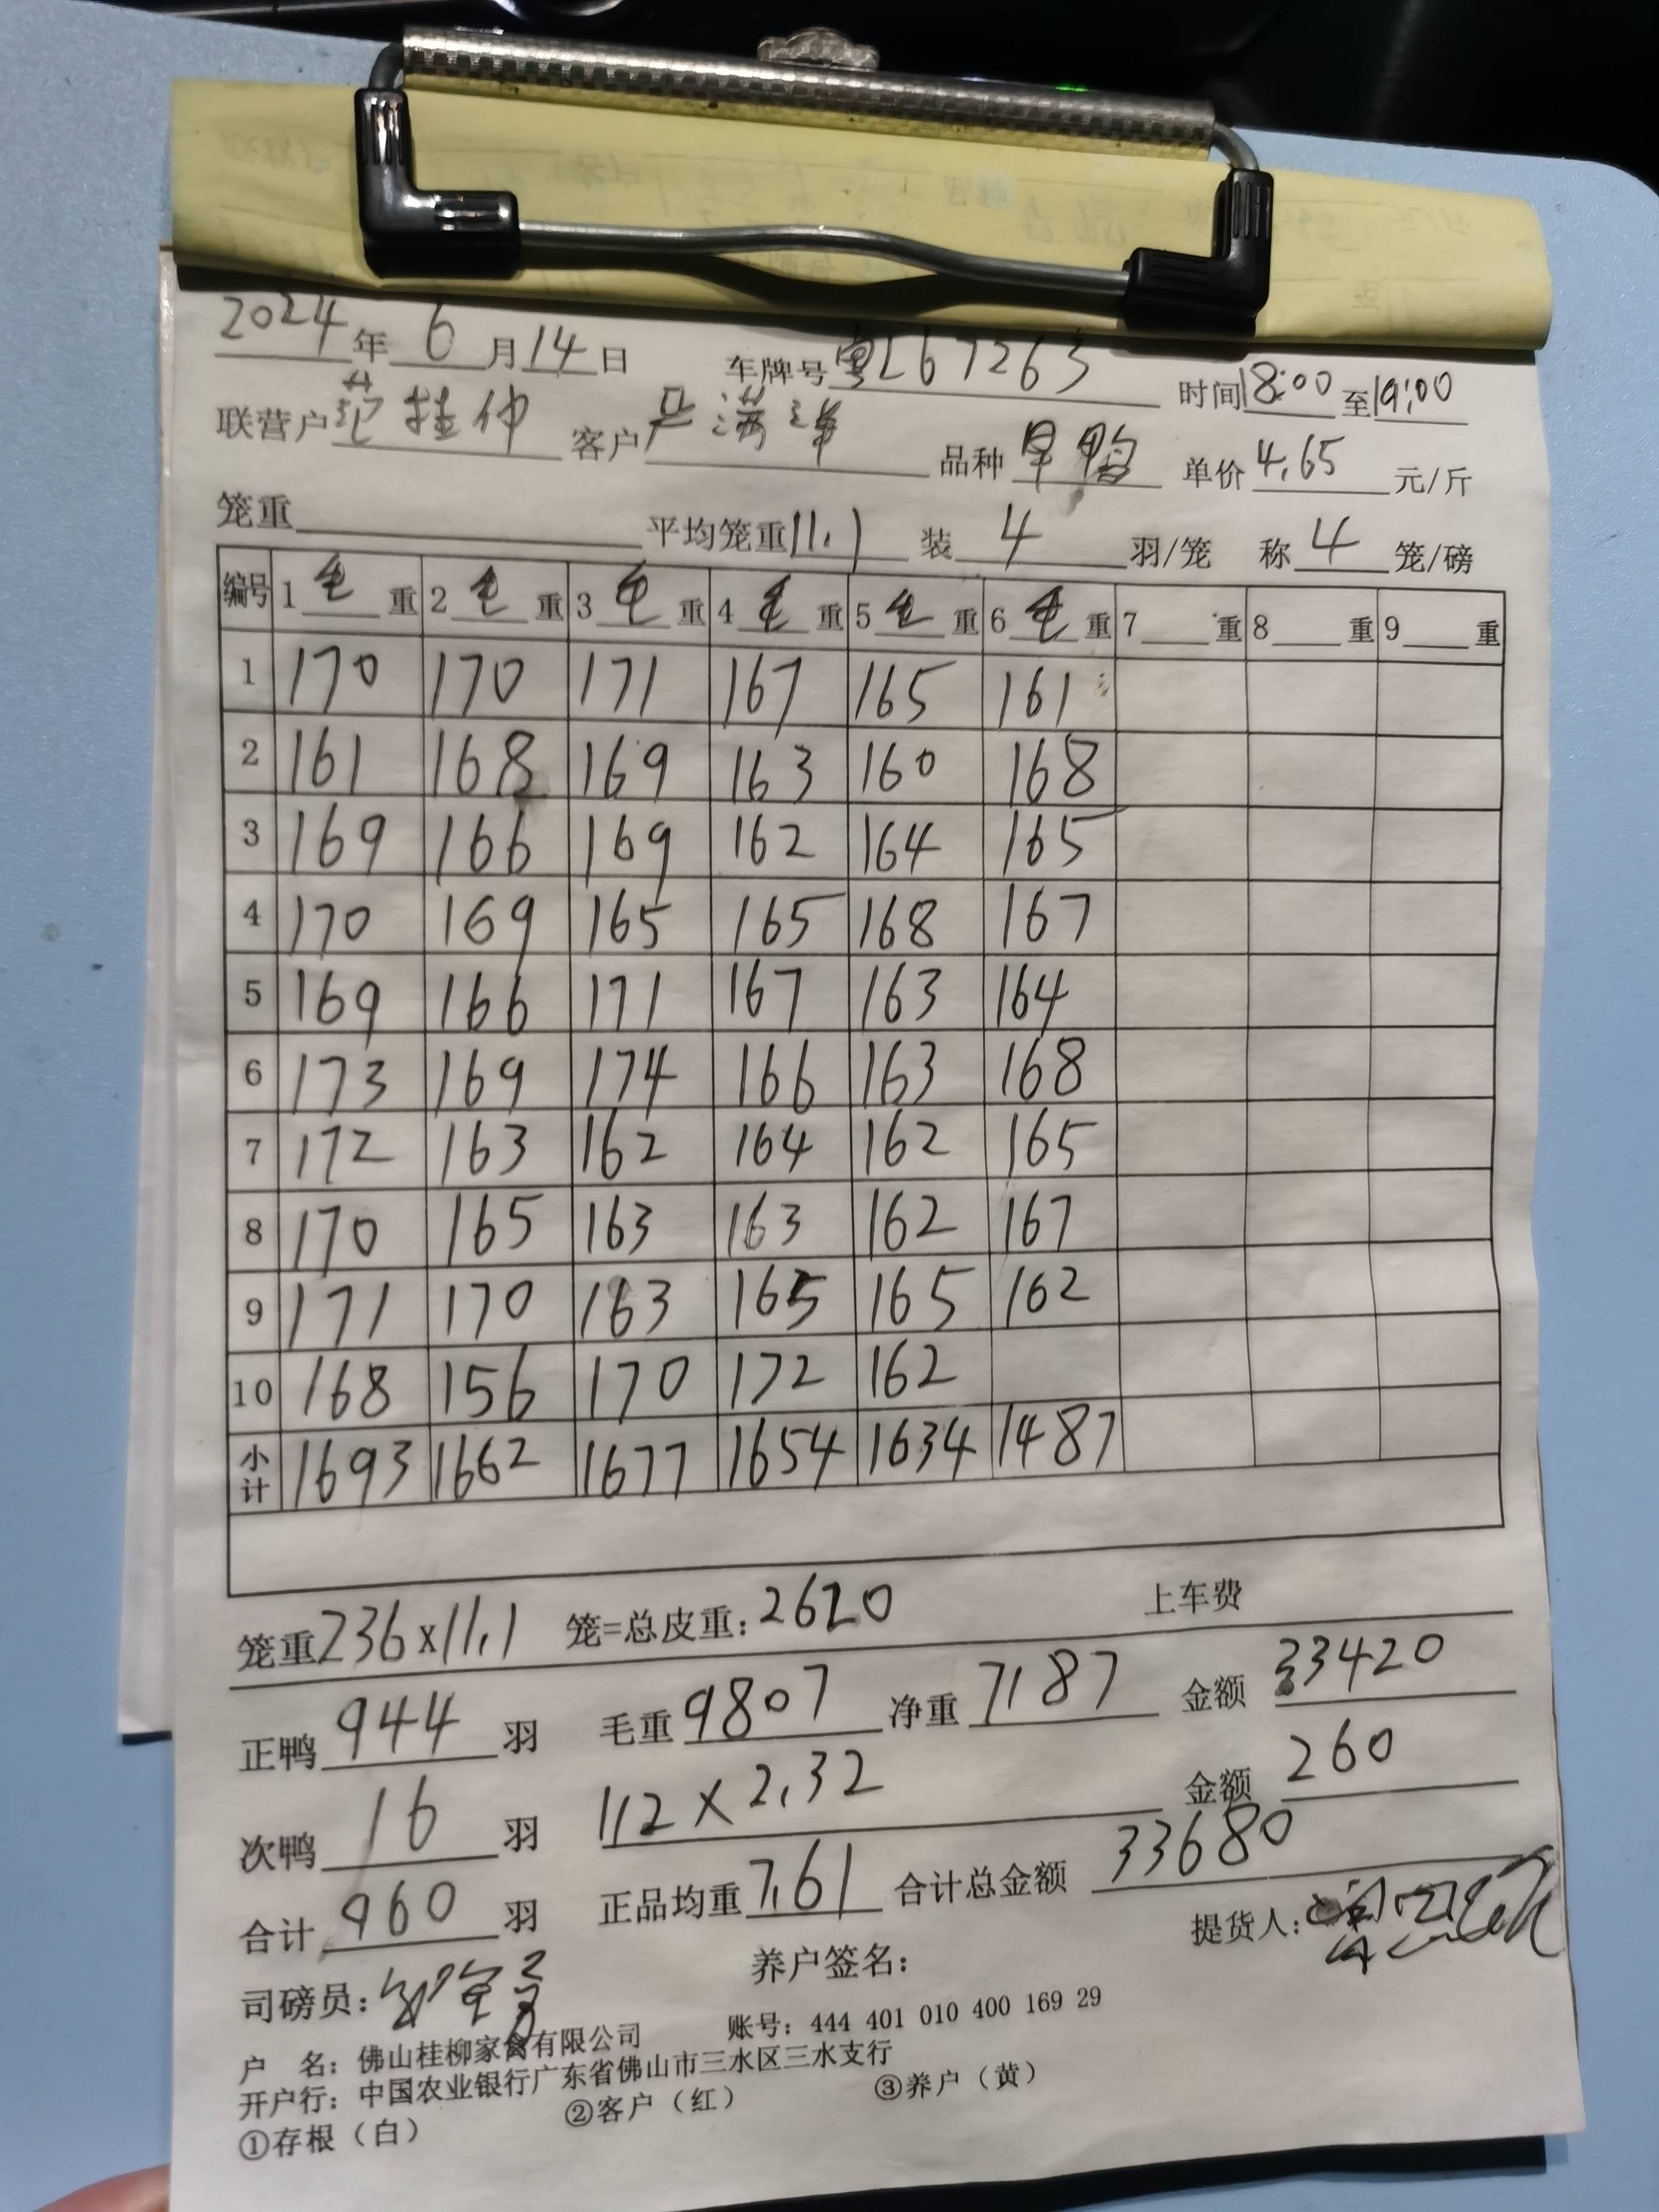 2024年6月14日 车牌号粤L67263 时间18:00至19:00
联营户范桂仲 客户严满洋 品种旱鸭 单价4.65元/斤
笼重 平均笼重11.1 装4羽/笼 称4笼/磅
编号 1毛重 2毛重 3毛重 4毛重 5毛重 6毛重 7重 8重 9重
1 170 170 171 167 165 161
2 161 168 169 163 160 168
3 169 166 169 162 164 165
4 170 169 165 165 168 167
5 169 166 171 167 163 164
6 173 169 174 166 163 168
7 172 163 162 164 162 165
8 170 165 163 163 162 167
9 171 170 163 165 165 162
10 168 156 170 172 162
小计 1693 1662 1677 1654 1634 1487
笼重236x11.1 笼=总皮重:2620 上车费
正鸭944羽 毛重9807 净重7187 金额33420
次鸭16羽 112×2.32 金额260
合计960羽 正品均重7.61 合计总金额33680
司磅员: 养户签名: 提货人:
户 名: 佛山桂柳家禽有限公司 账号: 444 401 010 400 169 29
开户行: 中国农业银行广东省佛山市三水区三水支行
①存根(白) ②客户(红) ③养户(黄)